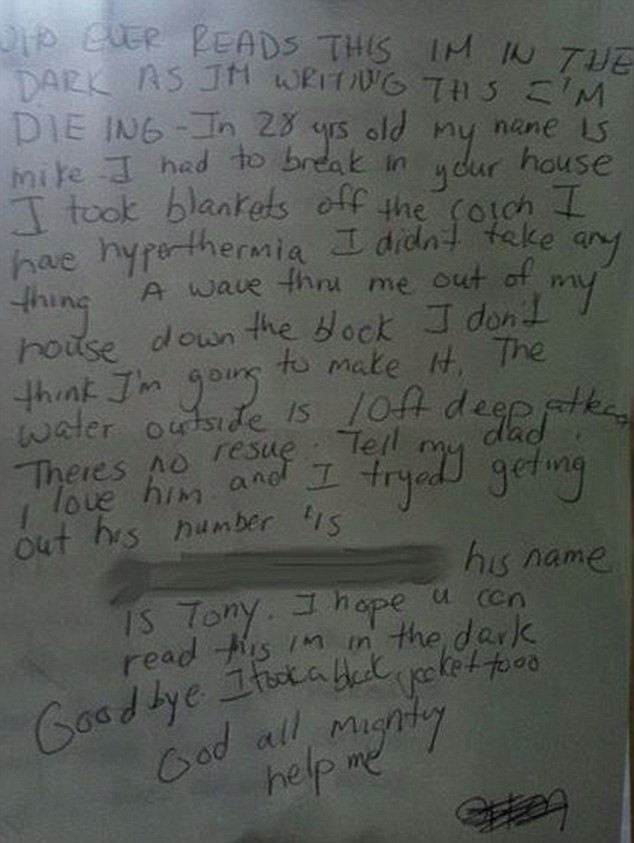 WHO EVER READS THIS IM IN THE
DARK AS IM WRITING THIS I'M
DIE ING - Im 28 yrs old my name is
mike I had to break in your house
I took blankets off the coich I
have hyperthermia I didn't take any
thing A wave thru me out of my
house down the block I don't
think I'm going to make it. The
water outside is 10ft deep atleas
Theres no resue. Tell my dad
I love him and I tryed geting
out his number is
his name
is Tony. I hope u can
read this im in the dark
Good bye. I took a black jacket tooo
God all mighty
help me